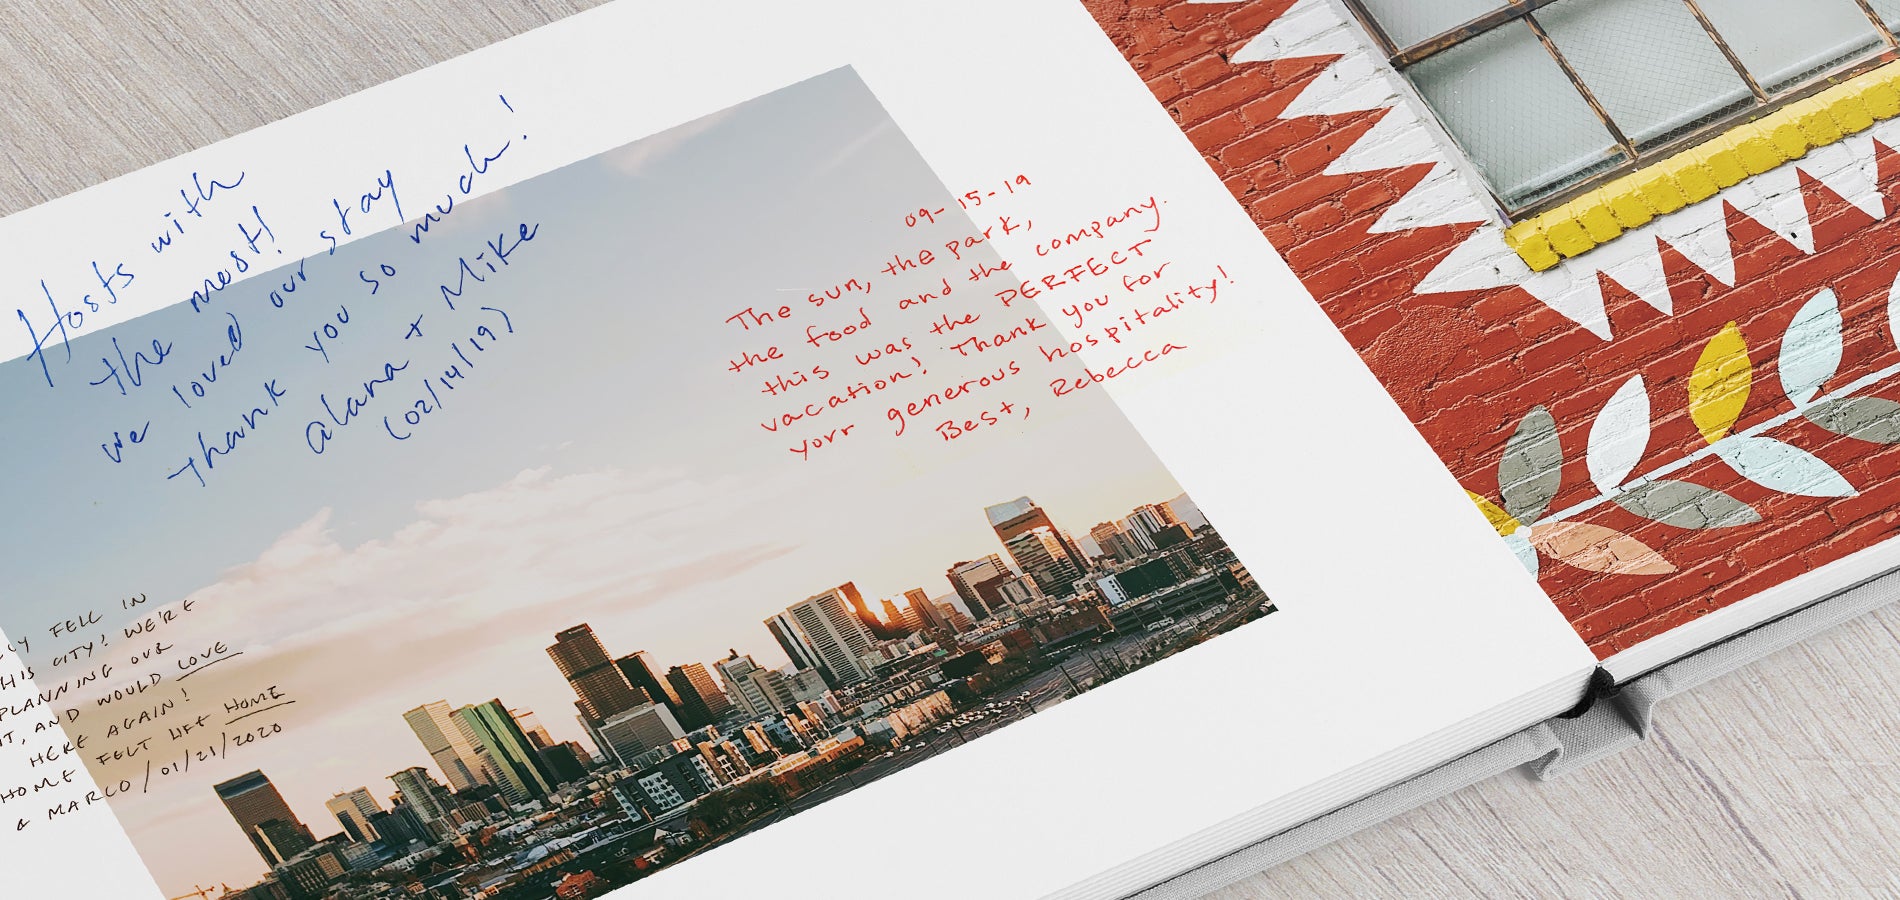 Hosts with
the most!
we loved our stay
Thank you so much!
alana + Mike
(02/14/19)
09-15-19
The sun, the park,
the food and the company.
this was the PERFECT
vacation! Thank you for
your generous hospitality!
Best, Rebecca
FELL IN
CITY! WE'RE
PLANNING OUR
, AND WOULD LOVE
HERE AGAIN!
HOME FELT LIKE HOME
& MARCO / 01/21/2020